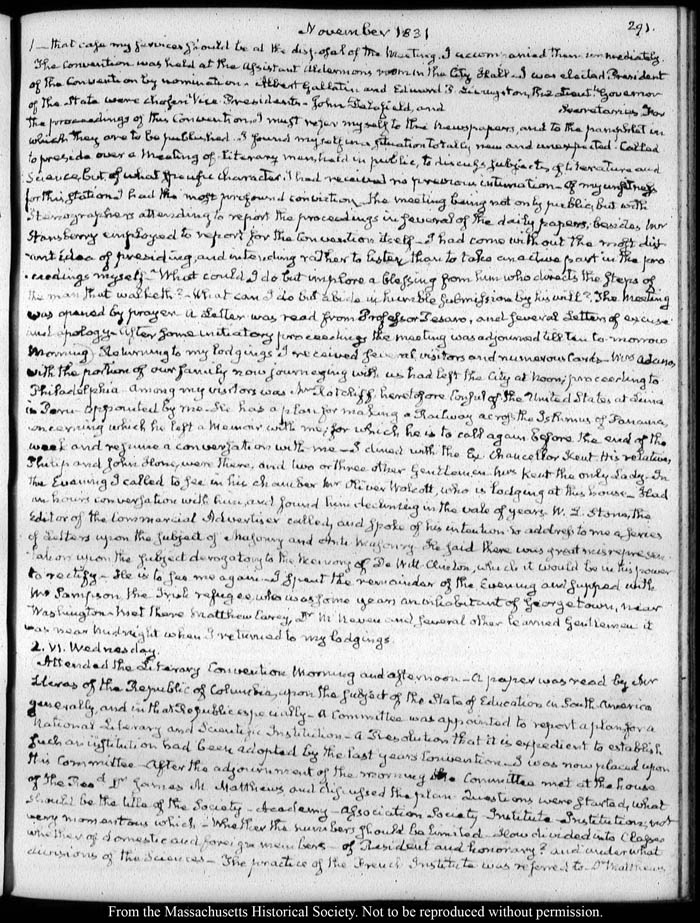 November 1831
291.
that case my services should be at the disposal of the Meeting. I accompanied them immediately.
The Convention was held at the Assistant Aldermens room in the City Hall. I was elected President
of the Convention by nomination - Albert Gallatin and Edward P. Livingston, the Lieut.t Governor
of the State were chosen Vice Presidents - John Delafield, and Secretaries. For
the proceedings of this Convention I must refer myself to the Newspapers, and to the pamphlet in
which they are to be published. I found myself in a situation totally new and unexpected. Called
to preside over a Meeting of Literary men held in public, to discuss subjects of Literature and
Science, but of what specific character I had received no previous intimation - Of my unfitness
for this station I had the most profound conviction. The meeting being not only public, but with
Stenographers attending to report the proceedings in several of the daily papers, besides Mr
Stansberry employed to report for the Convention itself - I had come without the most dis
tant idea of presiding, and intending rather to listen than to take an active part in the pro
ceedings myself - What could I do but implore a blessing from him who directs the steps of
the man that walketh? - What can I do but abide in humble submission by his will? The Meeting
was opened by prayer. A Letter was read from Professor Tesaro, and several Letters of excuse
and apology - After some initiatory proceedings the meeting was adjourned till ten to-morrow
Morning. Returning to my lodgings I received several visitors and numerous Cards - Mrs Adams
with the portion of our family now journeying with us had left the City at Noon, proceeding to
Philadelphia. Among my visitors was Mr Ratcliff, heretofore Consul of the United States at Lima
in Peru appointed by me. He has a plan for making a Railway across the Isthmus of Panama,
concerning which he left a Memoir with me, for which he is to call again before the end of the
week and resume a conversation with me - I dined with the Ex Chancellor Kent. His relatives,
Philip and John Hone, were there, and two or three other Gentlemen. Mrs Kent the only Lady. In
the Evening I called to see in his chamber Mr Oliver Wolcott, who is lodging at this house - Had
an hours conversation with him, and found him declining in the vale of years. W. L. Stone, the
Editor of the Commercial Advertiser called, and spoke of his intention to address to me a series
of Letters upon the subject of Masonry and Anti Masonry. He said there was great misrepresen
tation upon the subject derogatory to the Memory of De Witt Clinton, which it would be in his power
to rectify - He is to see me again - I spent the remainder of the Evening and supped with
Mr Sampson the Irish refugee, who was some years an inhabitant of Georgetown, near
Washington - Met there Matthew Carey, Dr McNeven and several other learned Gentlemen. it
was near Midnight when I returned to my lodgings.
2. VI. Wednesday.
Attended the Literary Convention Morning and afternoon - A paper was read by Mr
Lleras of the Republic of Columbia, upon the subject of the State of Education in South-America
generally, and in that Republic especially - A Committee was appointed to report a plan for a
National Literary and Scientific Institution - A Resolution that it is expedient to establish
such an institution had been adopted by the last years Convention - I was now placed upon
this Committee - After the adjournment of the morning the Committee met at the house
of the Revd Dr James M. Matthews and discussed the plan. Questions were started, what
should be the title of the Society - Academy - Association Society - Institute - Institution; not
very momentous which - Whether the numbers should be limited - How divided into Classes
whether of domestic and foreign members - of Resident and honorary? and under what
divisions of the Sciences - The practice of the French Institute was referred to - Dr Matthews
From the Massachusetts Historical Society. Not to be reproduced without permission.